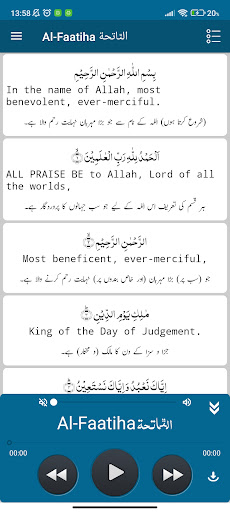 13:58
20%
Al-Faatiha الفاتحة
بِسْمِ اللَّهِ الرَّحْمَٰنِ الرَّحِيْمِ
In the name of Allah, most
benevolent, ever-merciful.
(شروع کرتا ہوں) اللہ کے نام سے جو بڑا مہربان نہایت رحم والا ہے۔
اَلْحَمْدُ لِلّٰهِ رَبِّ الْعٰلَمِيْنَ ۝١
ALL PRAISE BE to Allah, Lord of all
the worlds,
ہر قسم کی تعریف اس اللہ کے لیے جو سب جہانوں کا پروردگار ہے۔
الرَّحْمٰنِ الرَّحِيْمِ ۝٢
Most beneficent, ever-merciful,
جو (سب پر) بڑا مہربان (اور خاص بندوں پر) نہایت رحم کرنے والا ہے۔
مٰلِكِ يَوْمِ الدِّيْنِ ۝٣
King of the Day of Judgement.
جزا و سزا کے دن کا مالک (و مختار) ہے۔
اِيَّاكَ نَعْبُدُ وَاِيَّاكَ نَسْتَعِيْنُ ۝٤
Al-Faatiha الفاتحة
00:00
00:00